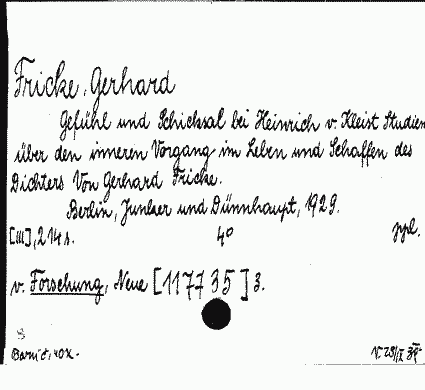 Fricke, Gerhard
Gefühl und Schicksal bei Heinrich v. Kleist Studien
über den inneren Vorgang im Leben und Schaffen des
Dichters Von Gerhard Fricke.
Berlin, Junker und Dünnhaupt, 1929.
[III], 214 s. 4º ppl.
v. Forschung, Neue [117735] 3.
8